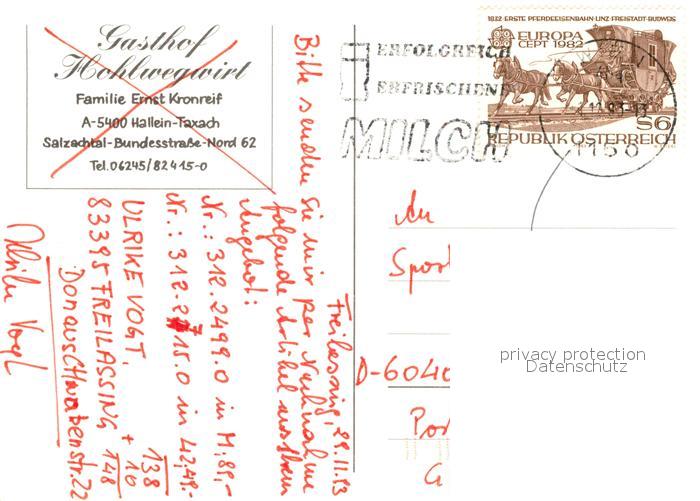 Gasthof
Hohlwegwirt
Familie Ernst Kronreif
A-5400 Hallein-Taxach
Salzachtal-Bundesstraße-Nord 62
Tel.06245/82415-0
Freilassing, 29.11.93
Bitte senden Sie mir per Nachnahme
folgende Artikel aus Ihrem
Angebot:
Nr.: 312.2499.0 in M; 89,-
Nr.: 312- 15.0 in 42,49.-
ULRIKE VOGT,
83395 FREILASSING
Donauschwabenstr. 22
138
+ 10
148
Ulrike Vogt
ERFOLGREICH
ERFRISCHEND
MILCH
1832 ERSTE PFERDEEISENBAHN LINZ-FREISTADT-BUDWEIS
EUROPA
CEPT 1982
S6
REPUBLIK ÖSTERREICH
1150
An
D-6040
privacy protection
Datenschutz